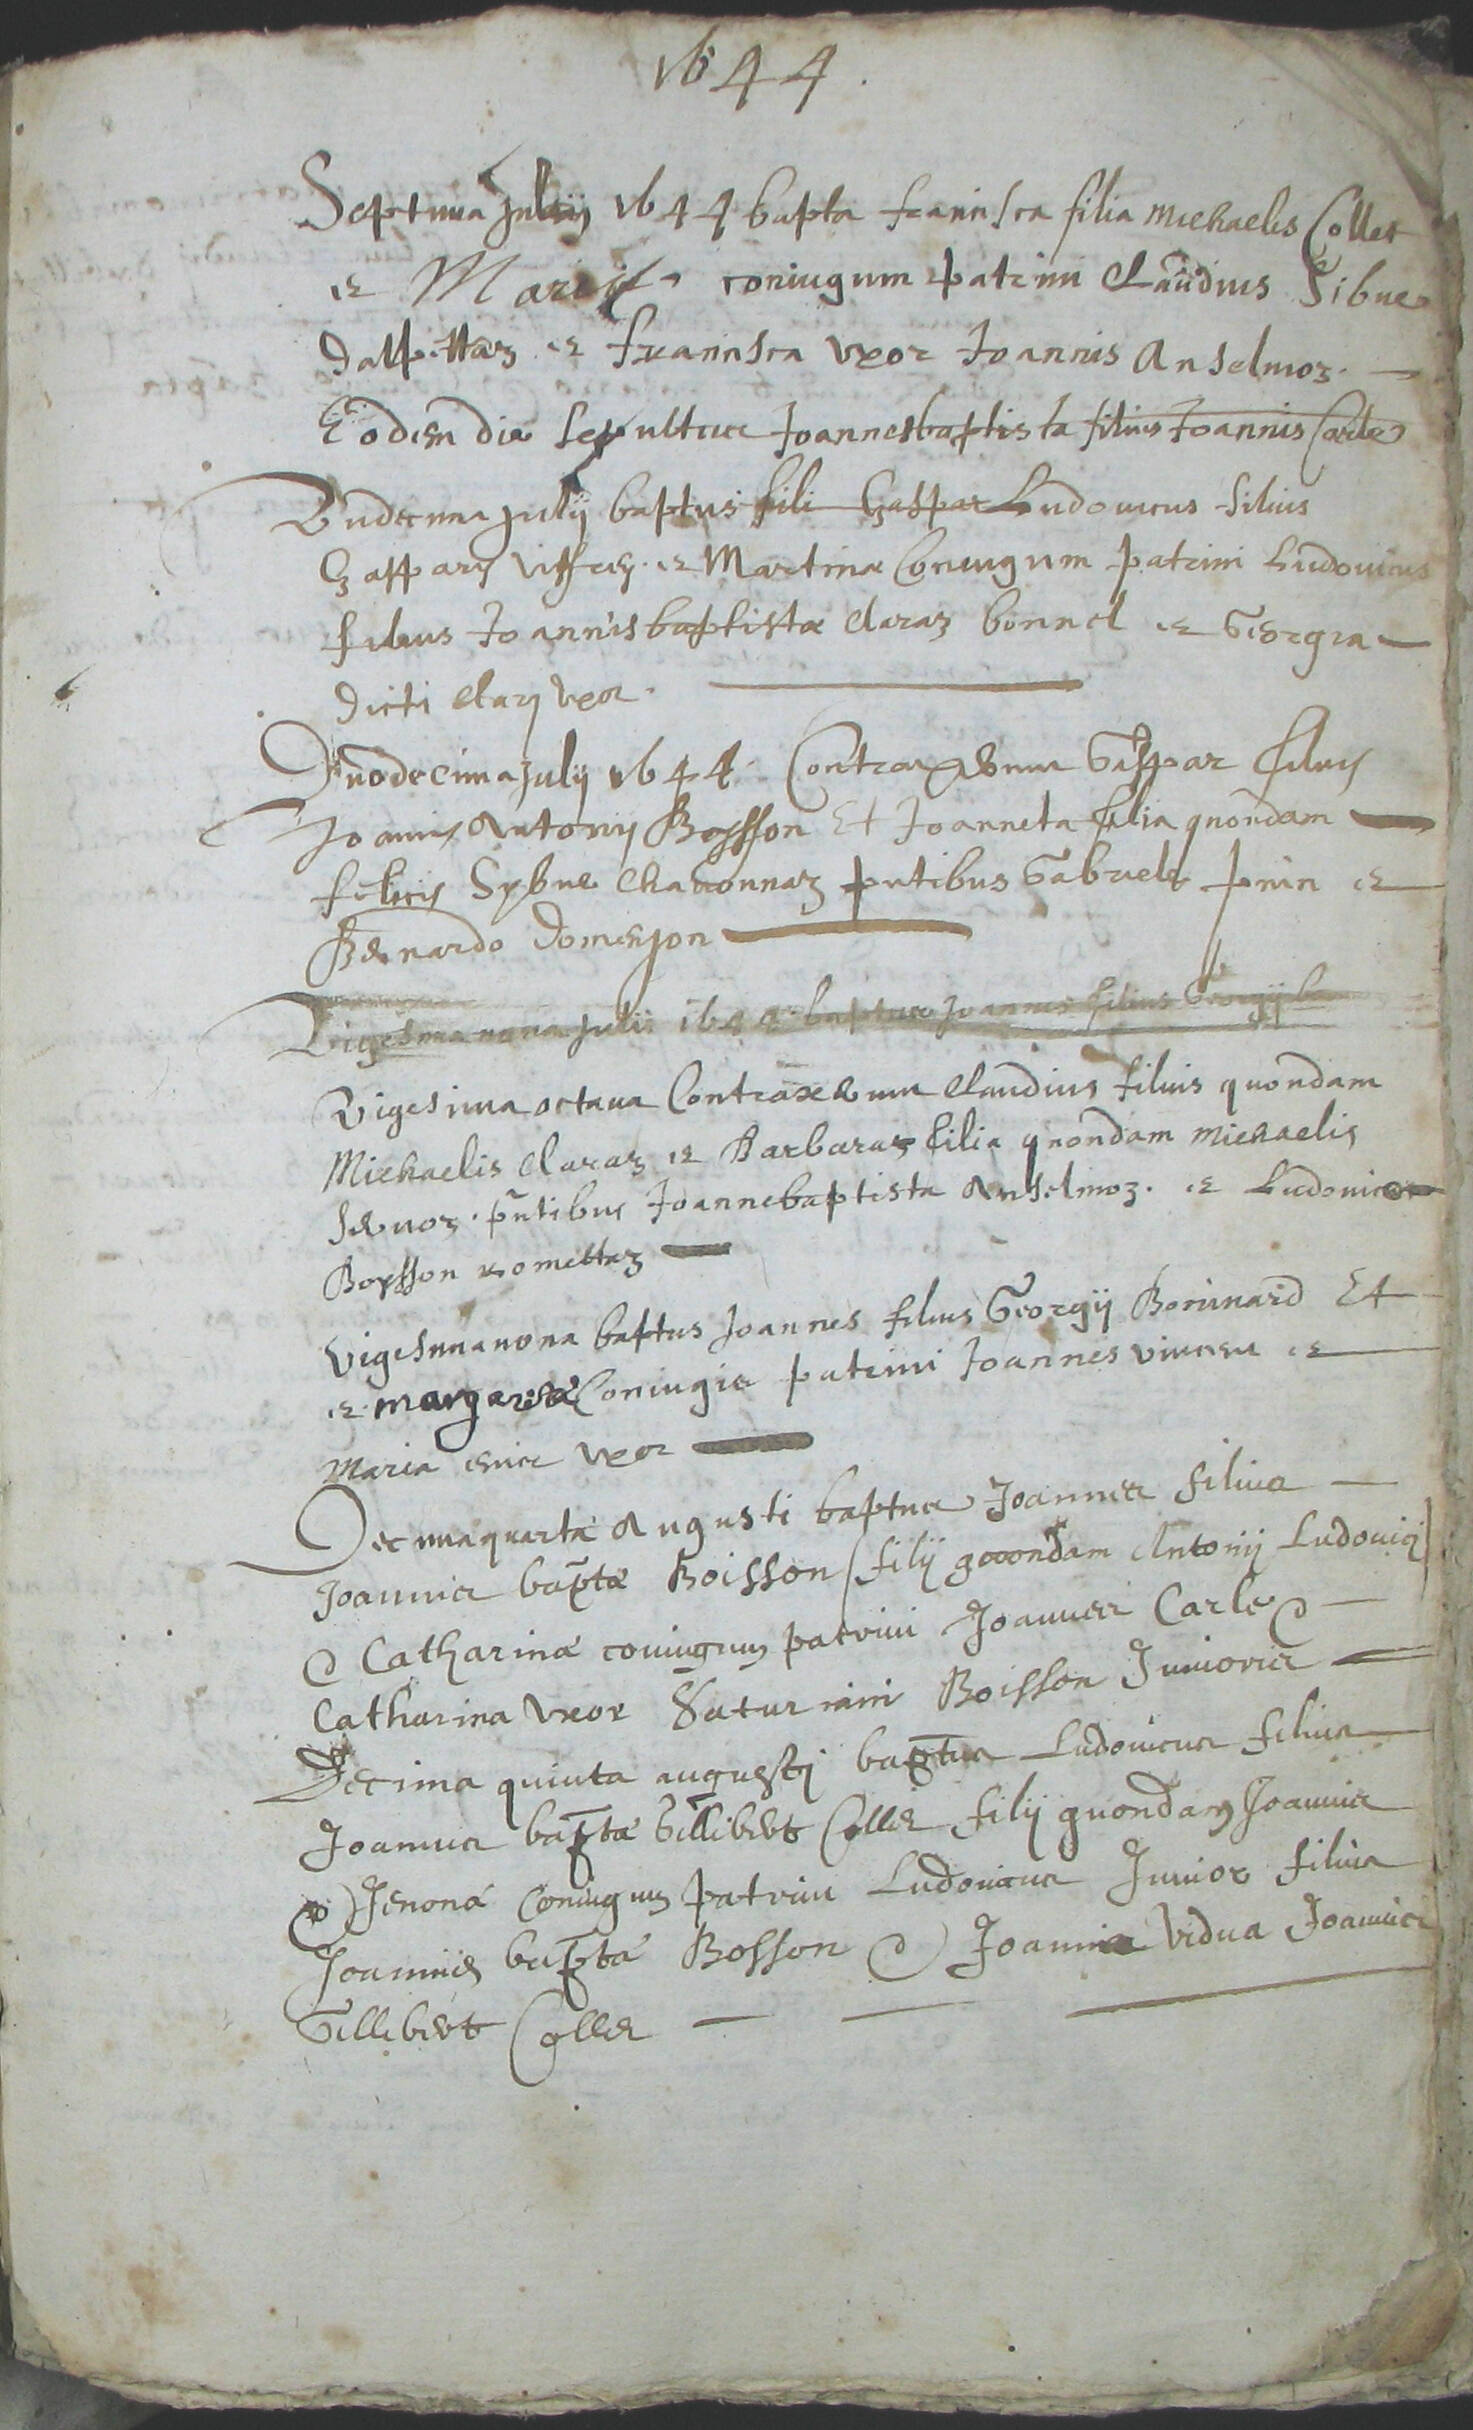 1644.
Septima Julij 1644 bapta francisca filia michaelis Collet
et Mariæ coniugum patrini Claudius Sibue
dalpettaz et francisca vxor Joannis Anselmoz.
Eodem die sepultus Joannesbaptista filius Joannis Carle
Vndecima Julij baptus fili Gaspar Ludouicus filius
Gasparis et Martinæ Coniugum patrini Ludouicus
filius Joannisbaptistæ Claraz bonnel et Georgia
dicti Clarz vxor.
Duodecima Julij 1644 Contraxerunt Gaspar filius
Joannis Antonij Boysson Et Joanneta filia quondam
felicis Sybue Chauonnaz pntibus Gabriele prin et
Bernardo domenjon
Vigesima nona Julii 1644 baptus Joannes filius Georgij bo
Vigesima octaua Contraxerunt Claudius filius quondam
Michaelis Claraz et Barbaraz filia quondam michaelis
seruoz. pñtibus Joannebaptista Anselmoz. et Ludouico
Boysson romettaz
Vigesima nona baptus Joannes filius Georgij Borinard Et
et margaretæ Coniugis patrini Joannes et
Maria eius vxor
Decimaquarta Augusti baptus Joannes filius
Joannis bapťæ Boisson (filij quondam Antonij Ludouici)
& Catharinæ coniugum patrini Joannes Carle &
Catharina vxor Saturnini Boisson Junioris
Decima quinta augusti baptus Ludouicus filius
Joannis baptæ Gillibert Collet filij quondam Joannis
& Jenonæ Coniugum patrini Ludouicus Junior filius
Joannis baptæ Bosson & Joannia vidua Joannis
Gillibert Collet